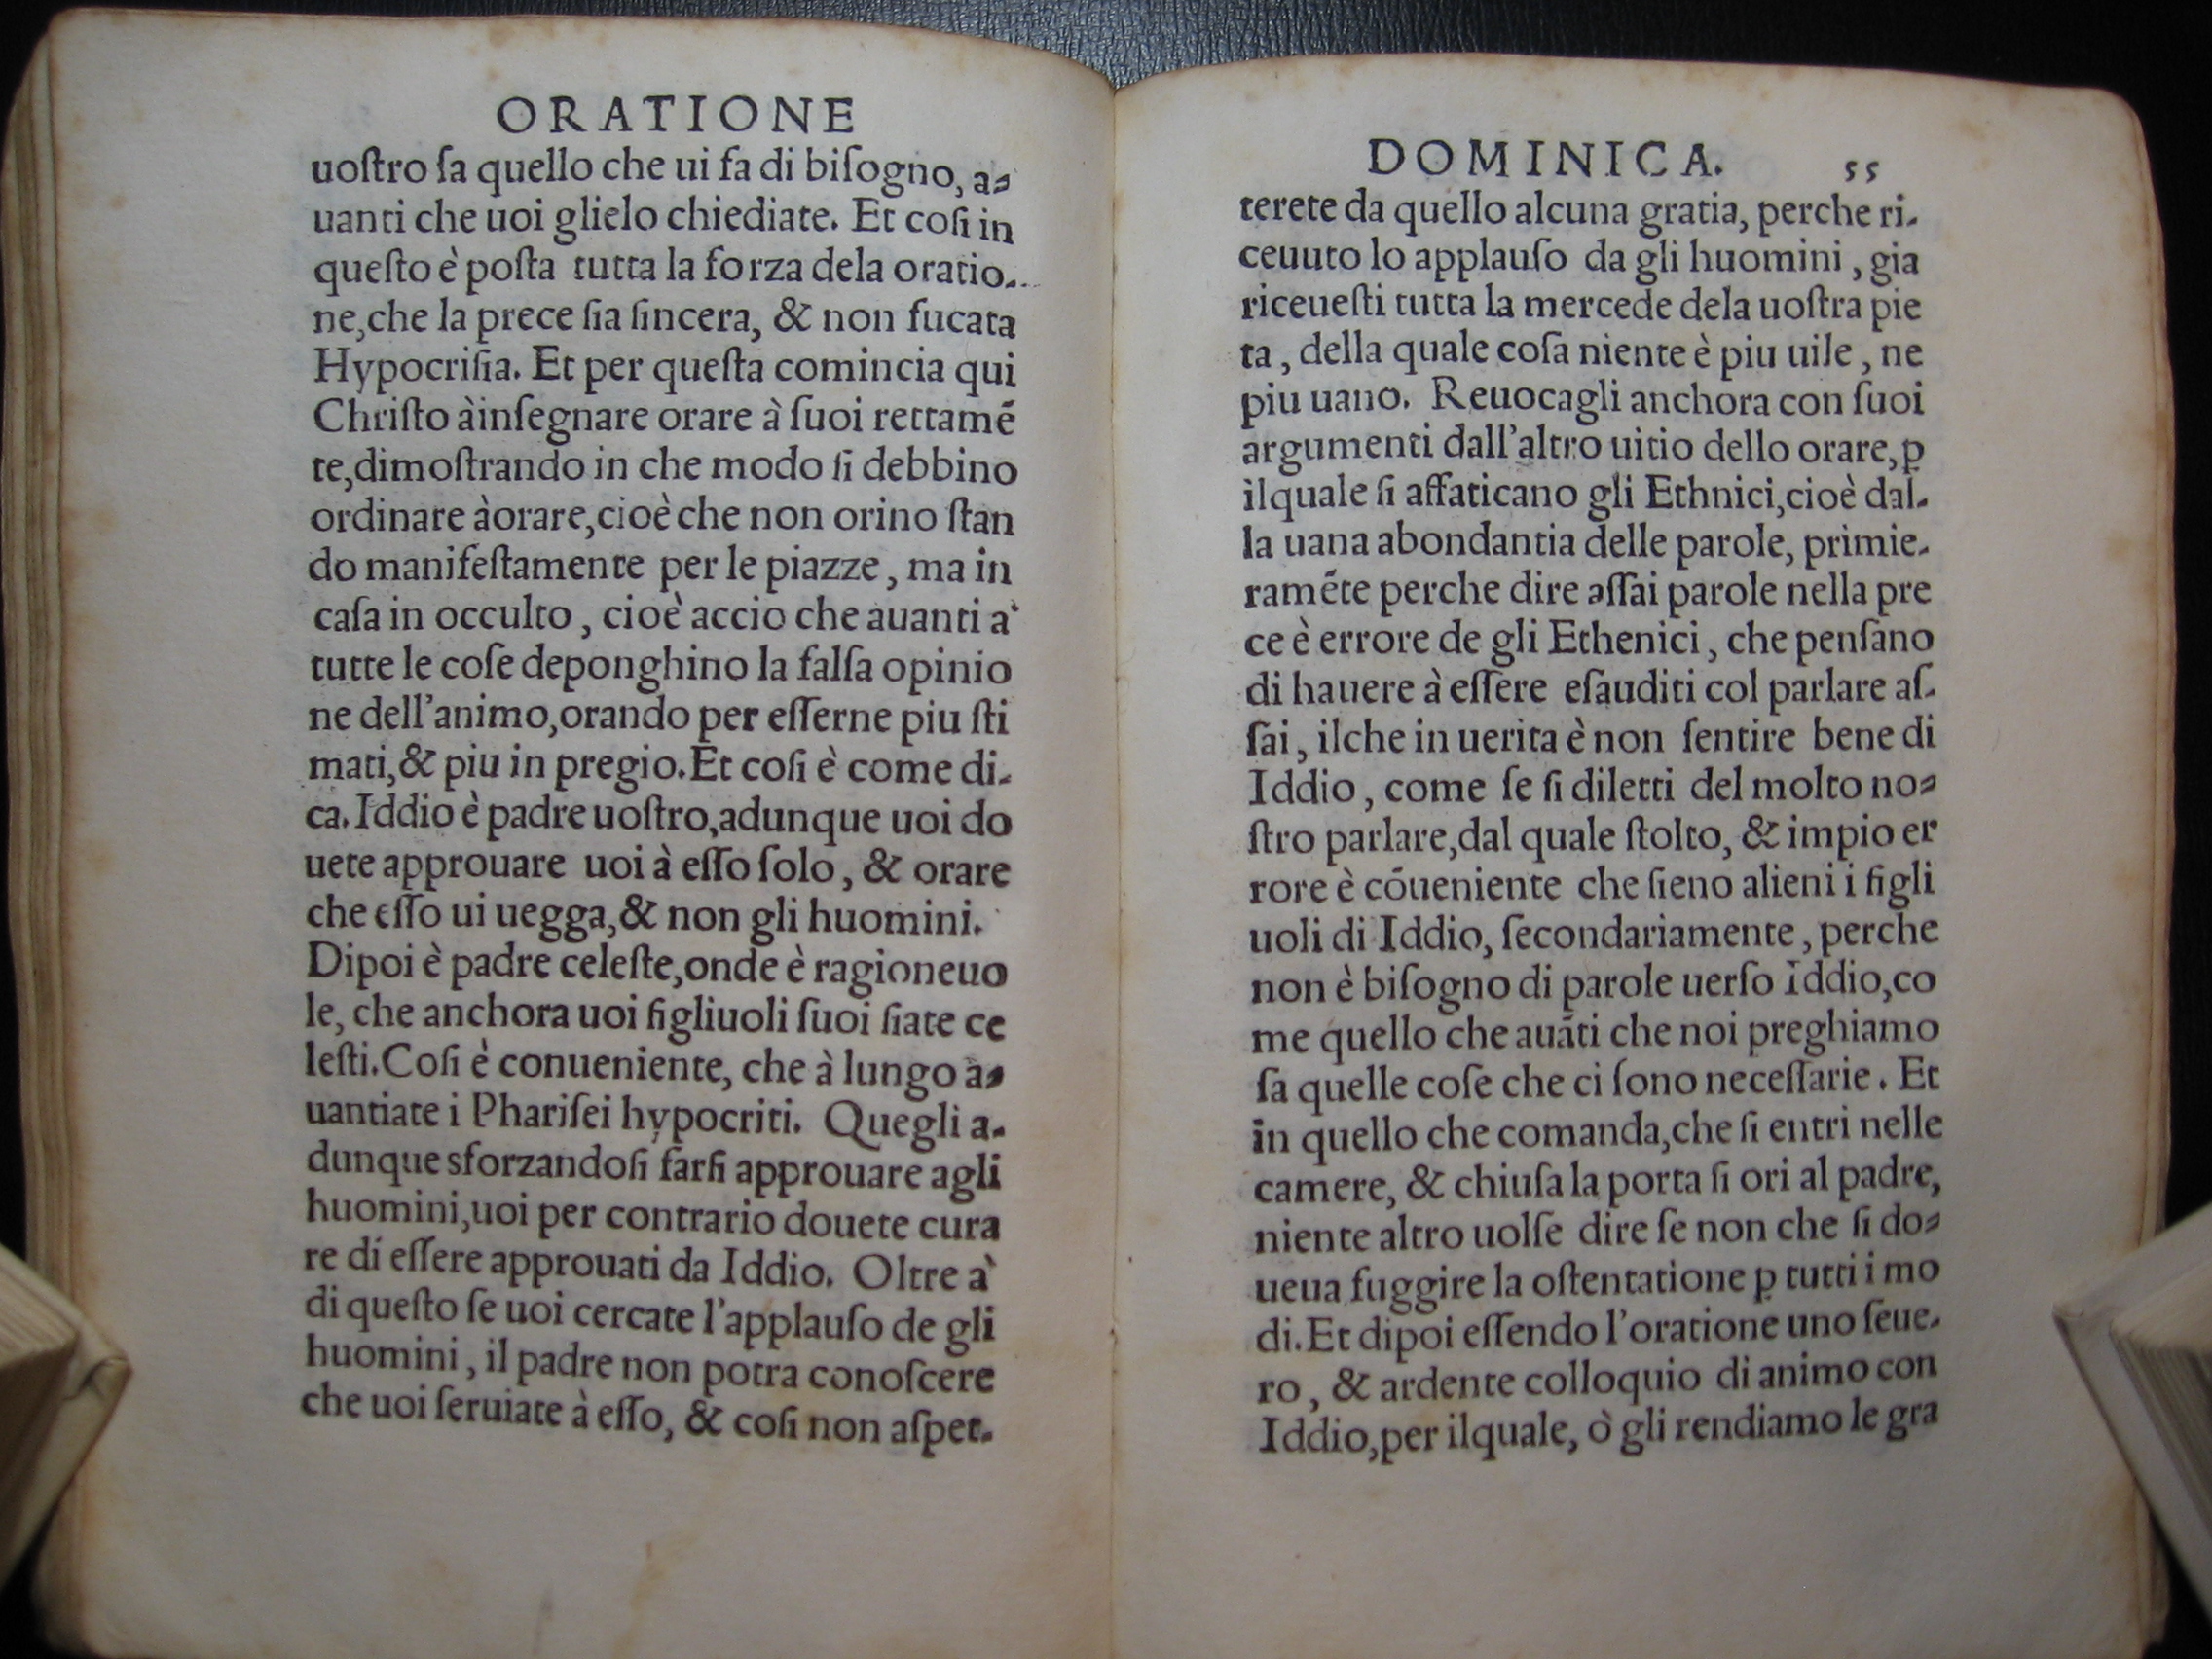 ORATIONE
uoſtro ſa quello che ui fa di biſogno, a-
uanti che uoi glielo chiediate. Et coſi in
queſto è poſta tutta la forza dela oratio-
ne,che la prece ſia ſincera, & non fucata
Hypocriſia. Et per queſta comincia qui
Chriſto àinſegnare orare à ſuoi rettamē
te,dimoſtrando in che modo ſi debbino
ordinare àorare,cioè che non orino ſtan
do manifeſtamente per le piazze, ma in
caſa in occulto, cioè accio che auanti a'
tutte le coſe deponghino la falſa opinio
ne dell'animo,orando per eſſerne piu ſti
mati,& piu in pregio.Et coſi è come di-
ca.Iddio è padre uoſtro,adunque uoi do
uete approuare uoi à eſſo ſolo, & orare
che eſſo ui uegga,& non gli huomini.
Dipoi è padre celeſte,onde è ragioneuo
le, che anchora uoi figliuoli ſuoi ſiate ce
leſti.Coſi è conueniente, che à lungo a-
uantiate i Phariſei hypocriti. Quegli a-
dunque sforzandoſi farſi approuare agli
huomini,uoi per contrario douete cura
re di eſſere approuati da Iddio. Oltre à
di queſto ſe uoi cercate l'applauſo de gli
huomini, il padre non potra conoſcere
che uoi ſeruiate à eſſo, & coſi non aſpet-
DOMINICA. 55
terete da quello alcuna gratia, perche ri-
ceuuto lo applauſo da gli huomini, gia
riceueſti tutta la mercede dela uoſtra pie
ta, della quale coſa niente è piu uile, ne
piu uano. Reuocagli anchora con ſuoi
argumenti dall'altro uitio dello orare,ꝑ
ilquale ſi affaticano gli Ethnici,cioè dal-
la uana abondantia delle parole, primie-
ramēte perche dire aſſai parole nella pre
ce è errore de gli Ethenici, che penſano
di hauere à eſſere eſauditi col parlare aſ-
ſai, ilche in uerita è non ſentire bene di
Iddio, come ſe ſi diletti del molto no-
ſtro parlare,dal quale ſtolto, & impio er
rore è cōueniente che ſieno alieni i figli
uoli di Iddio, ſecondariamente, perche
non è biſogno di parole uerſo Iddio,co
me quello che auāti che noi preghiamo
ſa quelle coſe che ci ſono neceſſarie. Et
in quello che comanda,che ſi entri nelle
camere, & chiuſa la porta ſi ori al padre,
niente altro uolſe dire ſe non che ſi do-
ueua fuggire la oſtentatione ꝑ tutti i mo
di.Et dipoi eſſendo l'oratione uno ſeue-
ro, & ardente colloquio di animo con
Iddio,per ilquale, ò gli rendiamo le gra